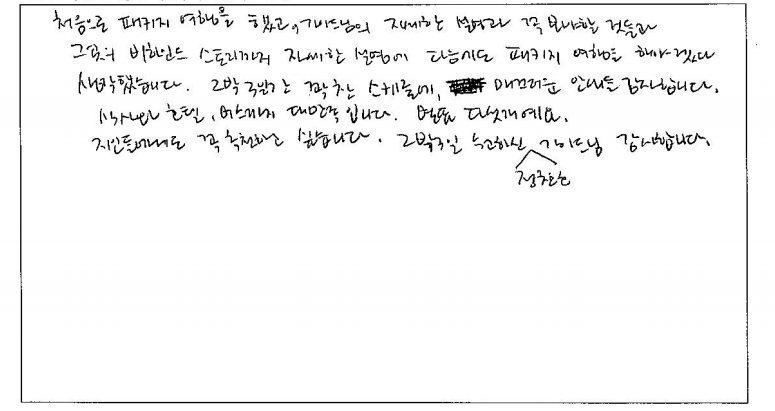 처음으로 패키지 여행을 했고, 가이드님의 자세한 설명과 꼭 보아야할 것들과
그곳의 비하인드 스토리까지 자세한 설명에 다음에도 패키지 여행을 해야겠다
생각했습니다. 2박3일간 꽉찬 스케줄에, 매끄러운 안내를 감사합니다.
식사와 호텔, 버스까지 대만족입니다. 별표 다섯개예요.
지인들에게도 꼭 추천하고 싶습니다. 2박3일 수고하신 가이드님 감사합니다.